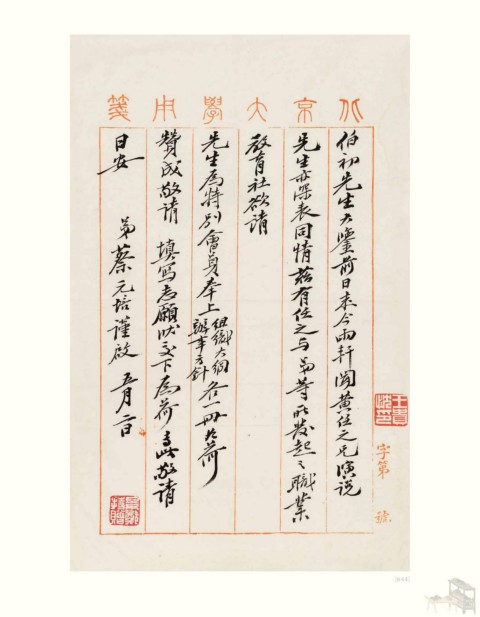 北京大學用箋
伯初先生大鑒前日來今雨軒聞黃任之兄演说
先生亦深表同情茲有任之与弟等所发起之職業
教育社欲請
先生為特別會員奉上組織大綱辦事方針各一冊如荷
贊成敬請 填寫志願狀交下為荷專此敬請
日安
弟蔡元培謹啟 五月二日
字第 號